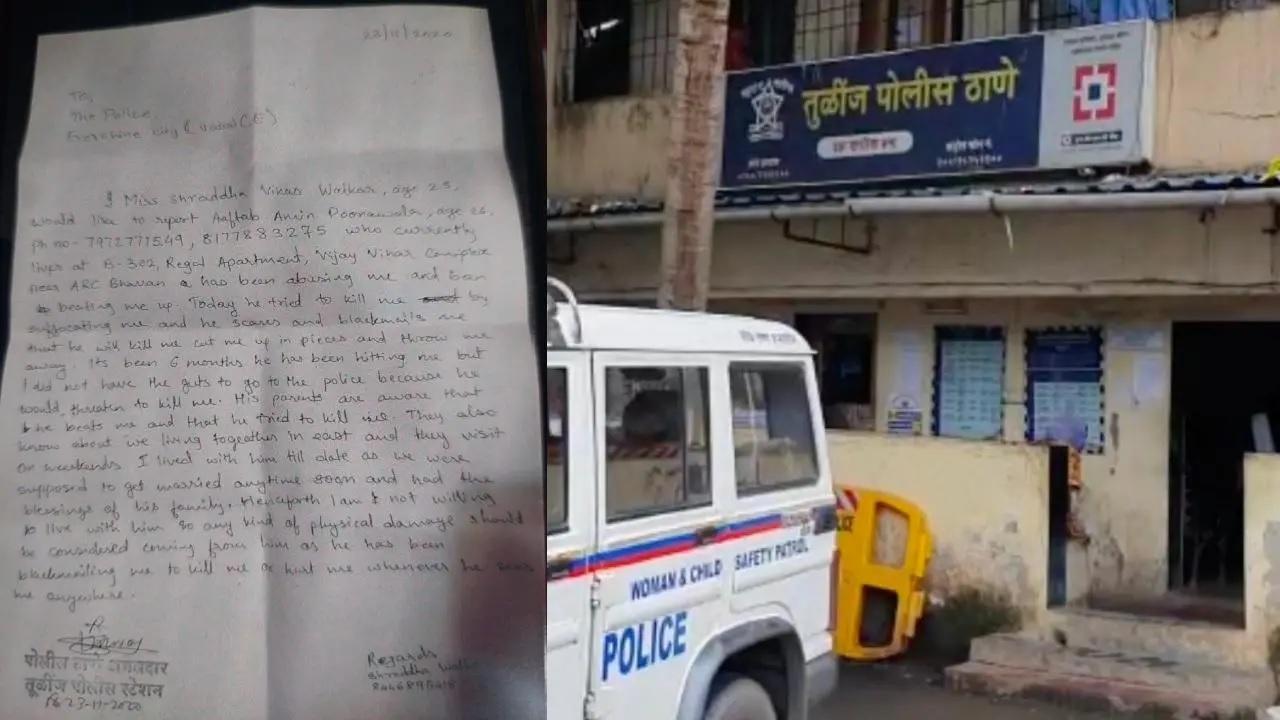 23/11/2020
To,
The Police
I Miss Shraddha Vikas Walkar, age 25,
would like to report Aaftab Amin Poonawala, age 26,
ph no- 7972777549, 8177883275 who currently
lives at B-302, Regal Apartment, Vijay Vihar Complex
near ARC Bhavan has been abusing me and
beating me up. Today he tried to kill me by
suffocating me and he scares and blackmails me
that he will kill me cut me up in pieces and throw me
away. Its been 6 months he has been hitting me but
I did not have the guts to go to the police because he
would threaten to kill me. His parents are aware that
he beats me and that he tried to kill me. They also
know about we living together in east and they visit
on weekends. I lived with him till date as we were
supposed to get married anytime soon and had the
blessings of his family. Henceforth I am not willing
to live with him so any kind of physical damage should
be considered coming from him as he has been
blackmailing me to kill me or hurt me whenever he sees
me anywhere.
पोलीस ठाणे अंमलदार
तूळींज पोलीस स्टेशन
23-11-2020
Regards
Shraddha
तुळींज पोलीस ठाणे
WOMAN & CHILD SAFETY PATROL
POLICE